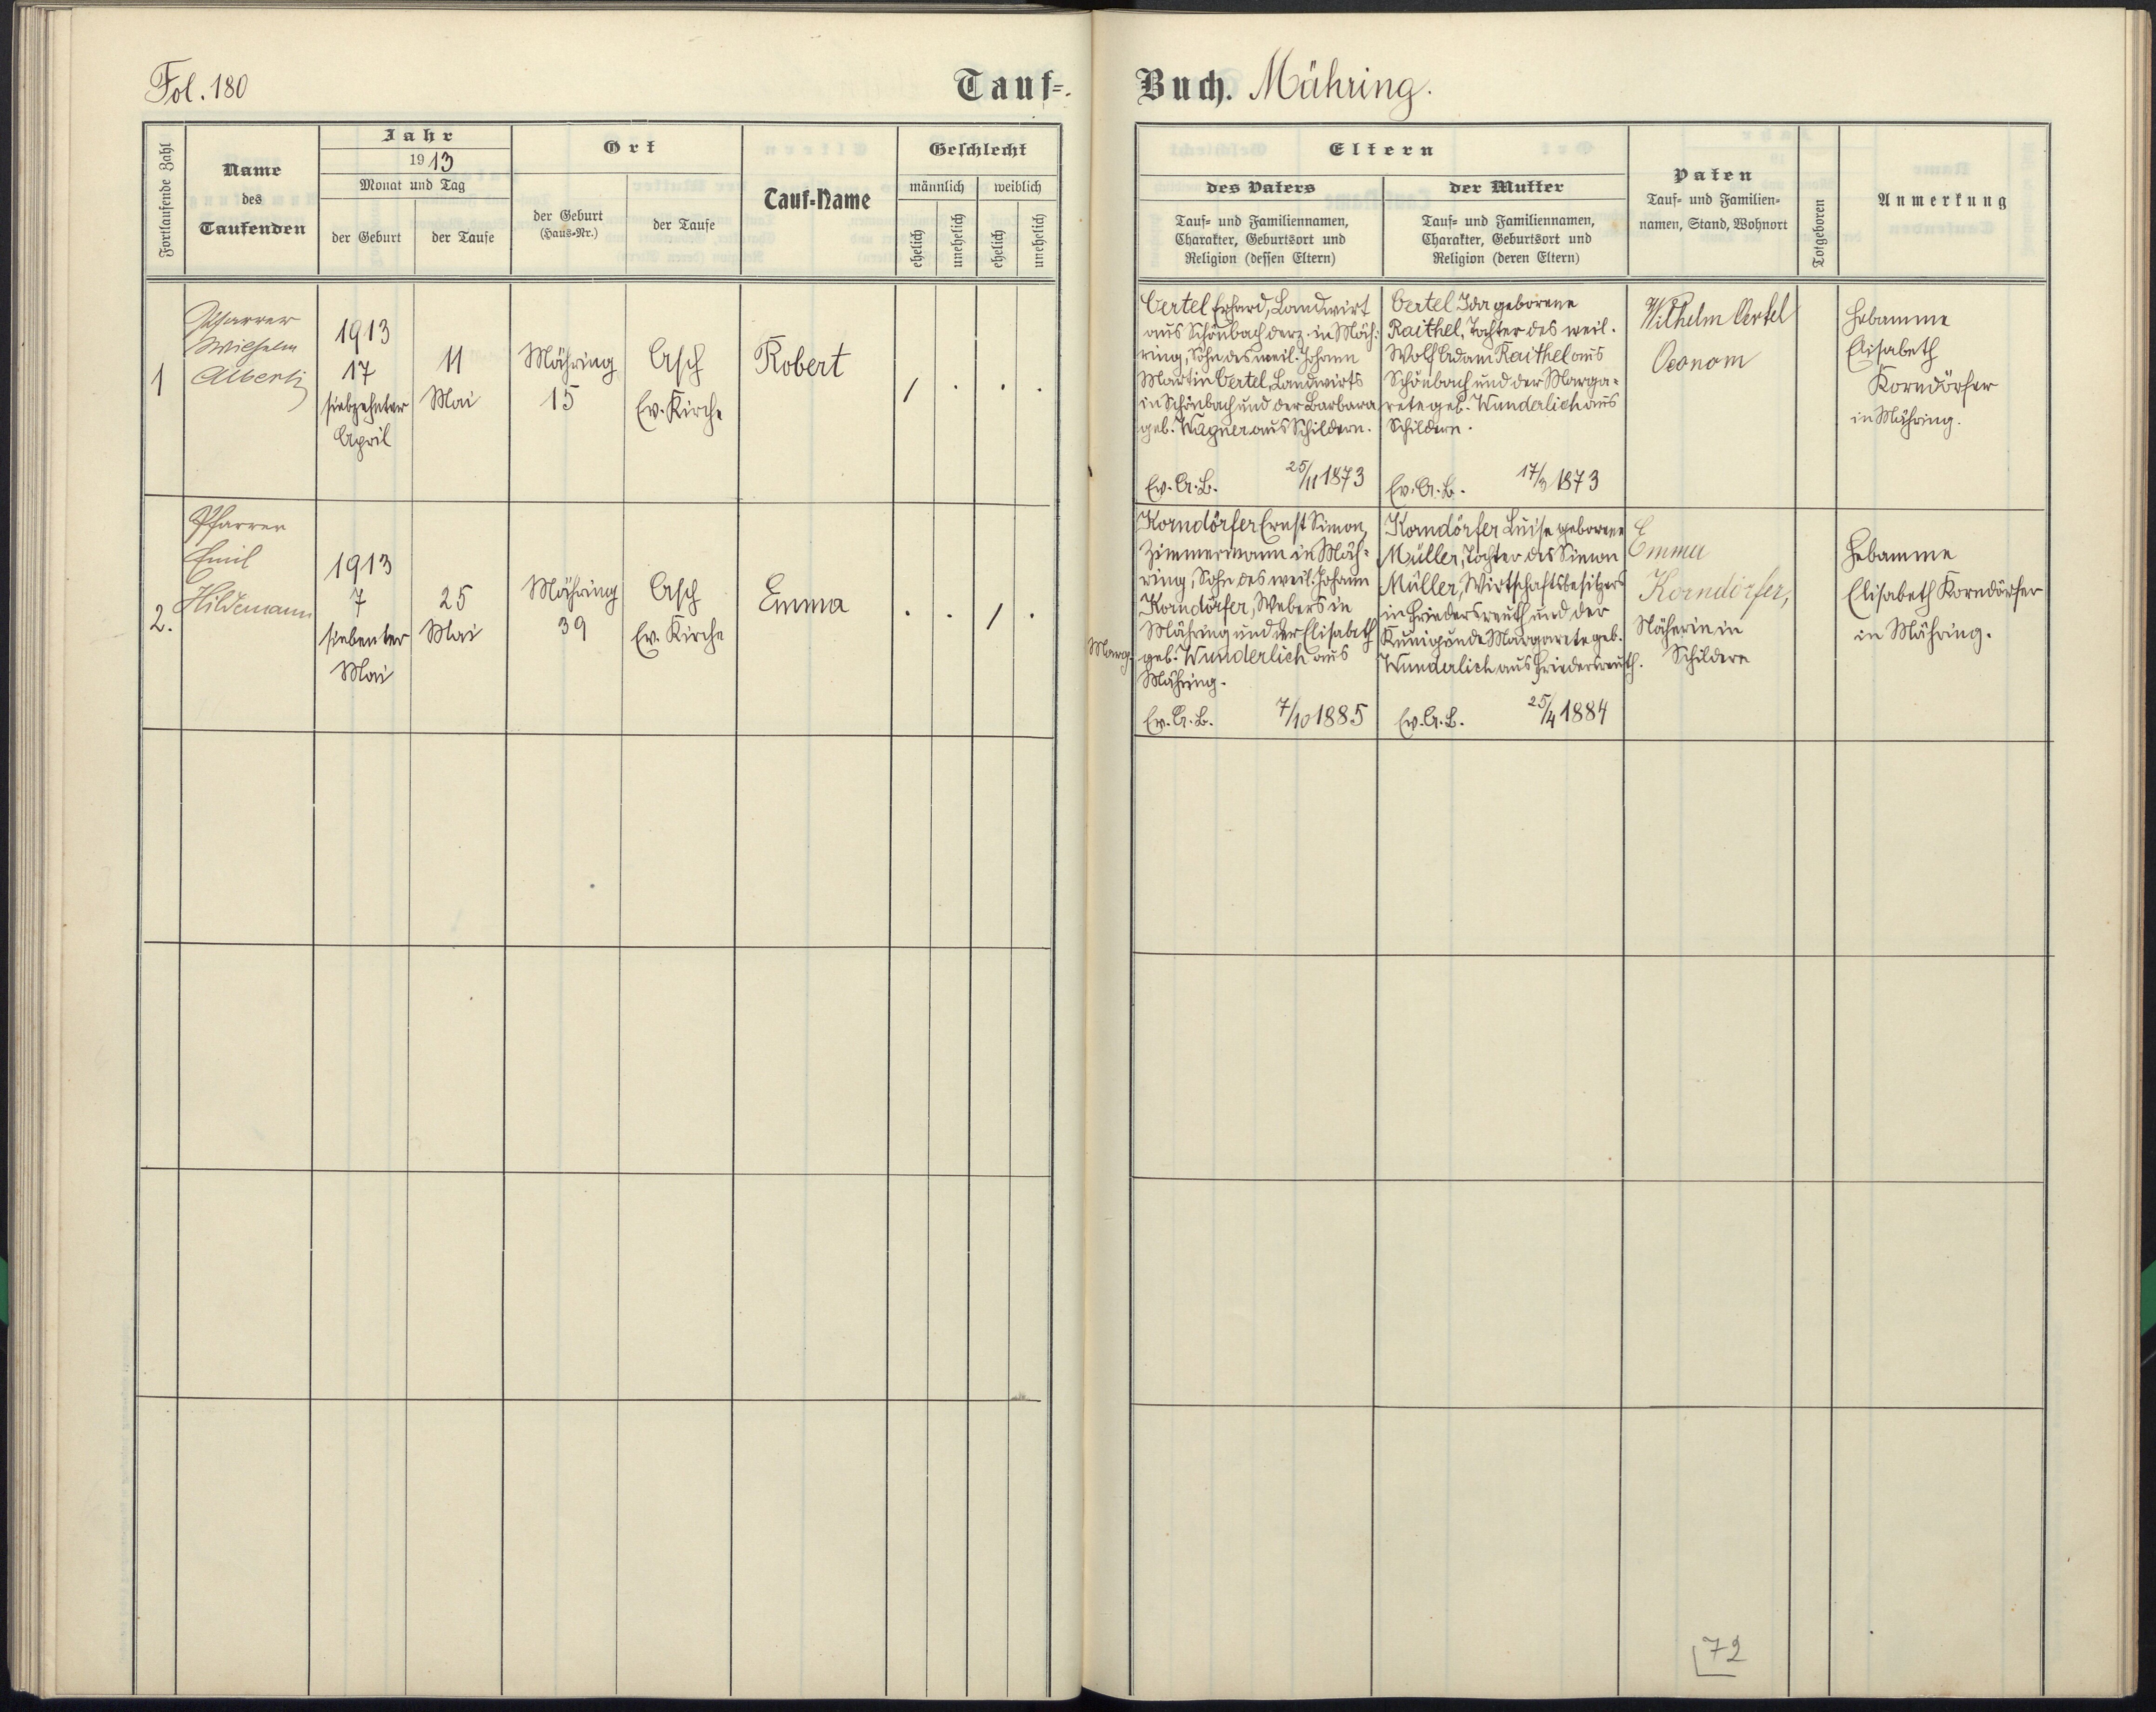 Fol. 180
Tauf-
Buch. Mähring.
Fortlaufende Zahl
Name
des
Taufenden
Jahr
1913
Monat und Tag
der Geburt
der Taufe
Ort
der Geburt
(Haus-Nr.)
der Taufe
Tauf-Name
Geschlecht
männlich
weiblich
ehelich
unehelich
ehelich
unehelich
Eltern
des Vaters
Tauf- und Familiennamen,
Charakter, Geburtsort und
Religion (dessen Eltern)
der Mutter
Tauf- und Familiennamen,
Charakter, Geburtsort und
Religion (deren Eltern)
Paten
Tauf- und Familien-
namen, Stand, Wohnort
Totgeboren
Anmerkung
1
Pfarrer
Wilhelm
Alberti
1913
17
siebzehnter
April
11
Mai
Mähring
15
Asch
Ev. Kirche
Robert
/ . . .
Oertel Erhard, Landwirt
aus Schönbach derz. in Mäh-
ring, Sohn des weil. Johann
Martin Oertel, Landwirts
in Schönbach und der Barbara
geb. Wagner aus Schildern.
Ev. A. B. 25/11 1873
Oertel Ida geborene
Raithel, Tochter des weil.
Wolf Adam Raithel aus
Schönbach und der Marga-
rete geb. Wunderlich aus
Schildern.
Ev. A. B. 17/3 1873
Wilhelm Oertel
Oeonom
Hebamme
Elisabeth
Korndörfer
in Mähring.
2.
Pfarrer
Emil
Hildemann
1913
7
siebenter
Mai
25
Mai
Mähring
39
Asch
Ev. Kirche
Emma
. . / .
Korndörfer Ernst Simon,
Zimmermann in Mäh-
ring, Sohn des weil. Johann
Korndörfer, Webers in
Mähring und der Elisabeth
Marg.
geb. Wunderlich aus
Mähring.
Ev. A. B. 7/10 1885
Korndörfer Luise geborene
Müller, Tochter des Simon
Müller, Wirtschaftsbesitzers
in Friedersreuth und der
Kunigunde Margarete geb.
Wunderlich aus Friedersreuth.
Ev. A. B. 25/4 1884
Emma
Korndörfer,
Näherin in
Schildern
Hebamme
Elisabeth Korndörfer
in Mähring.
72